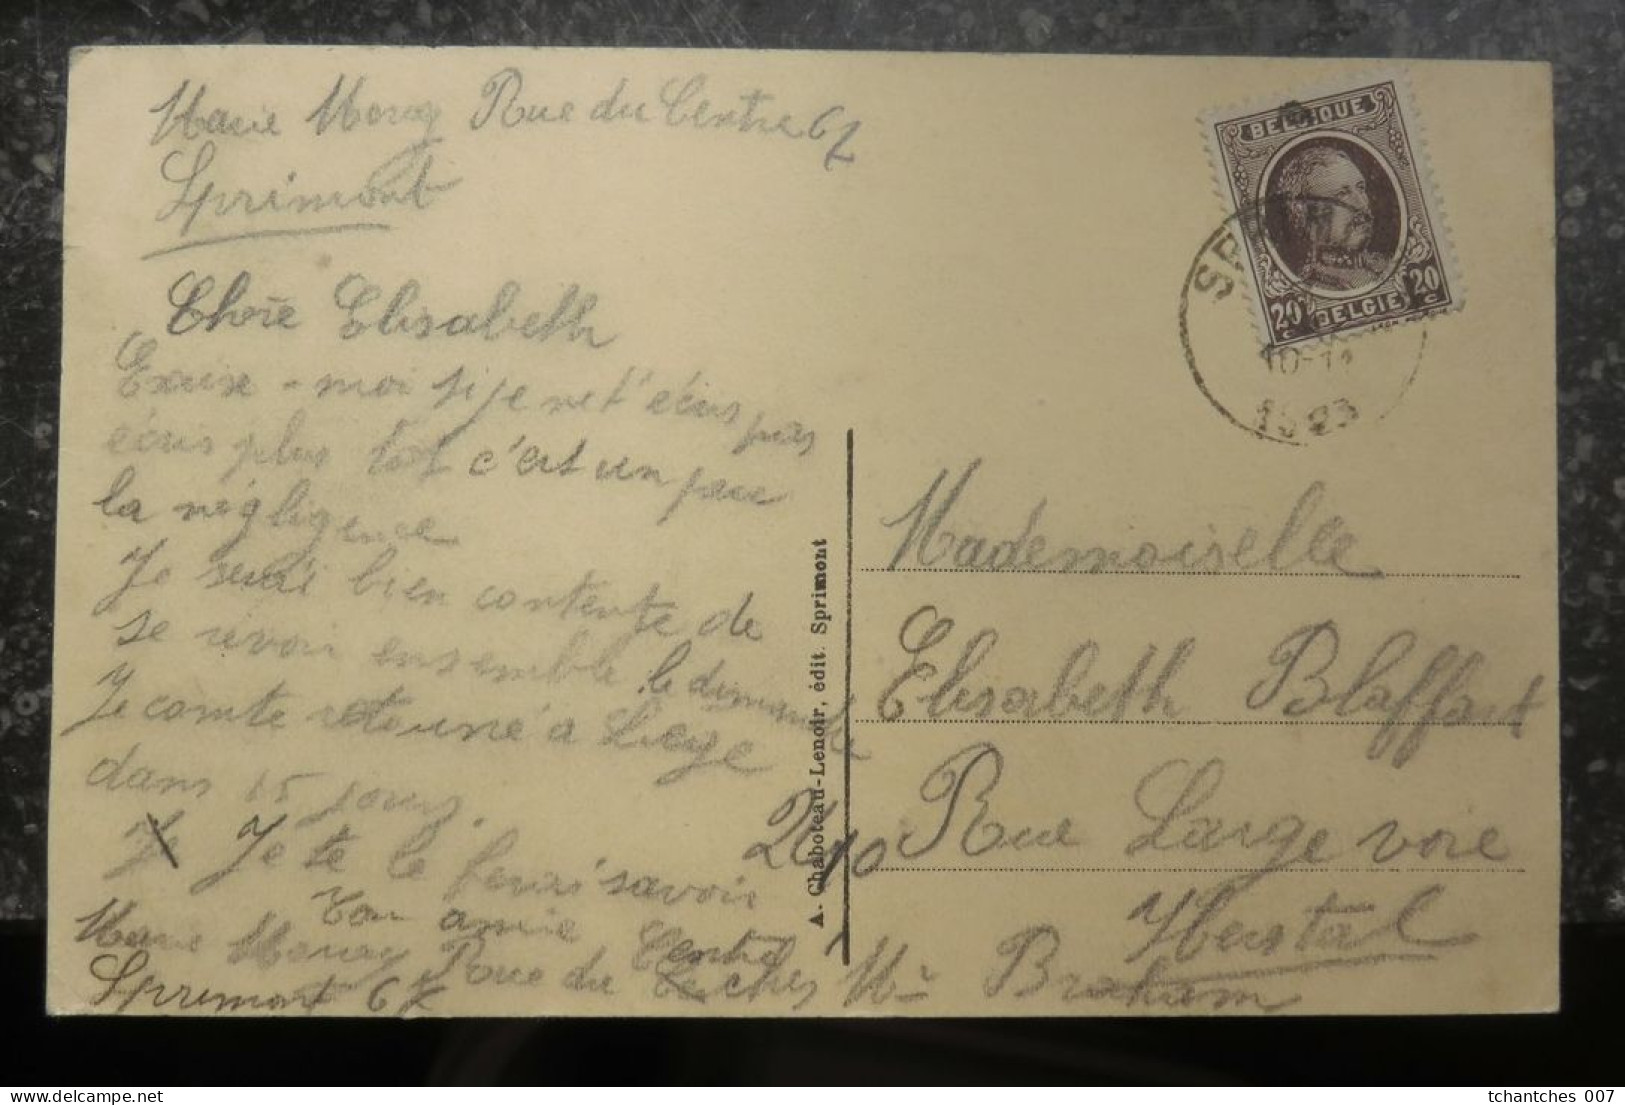 Marie Moray Rue du Centre 67
Sprimont
Chère Elisabeth
Excuse-moi si je ne t'écris pas
écris plus tot c'est un peu
la négligence
Je serai bien contente de
se revoir ensemble le dimanche
Je comte retourné a Liege
dans 15 jours.
Je Je te le ferai savoir
Ton amie
Marie Moray Rue du Centre
Sprimont 67 chez Mr Braham
A. Chaboteau-Lenoir, édit. Sprimont
BELGIQUE
20 c 20 c
BELGIE
SPRIMONT
10-11
1923
Mademoiselle
Elisabeth Blaffart
Rue Large voie
240
Herstal
tchantches 007